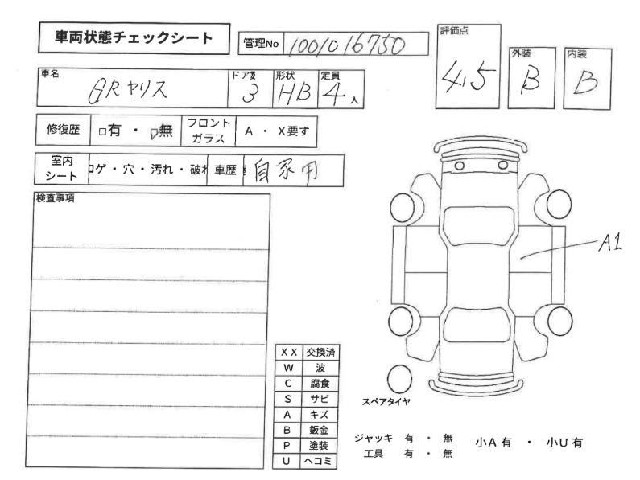 車両状態チェックシート
管理No 1001016750
評価点 4.5
外装 B
内装 B
車名 GRヤリス
ドア数 3
形状 HB
定員 4人
修復歴 □有 ・ □無
フロントガラス A ・ X要す
室内シート コゲ・穴・汚れ・破れ
車歴 自家用
検査事項
A1
XX 交換済
W 波
C 腐食
S サビ
A キズ
B 鈑金
P 塗装
U ヘコミ
スペアタイヤ
ジャッキ 有 ・ 無
工具 有 ・ 無
小A有 ・ 小U有